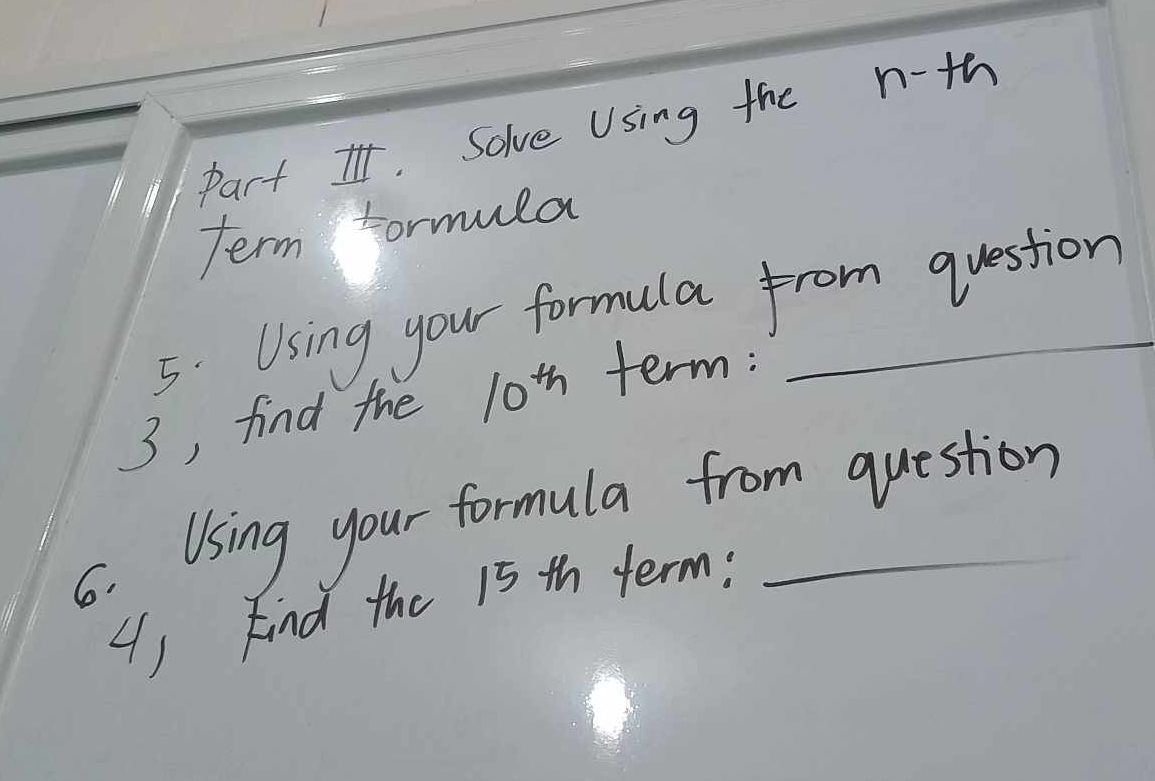 Part III. Solve Using the n-th
Term Formula
5. Using your formula from question
3, find the 10th term: ________
6. Using your formula from question
4, Find the 15th term: ________